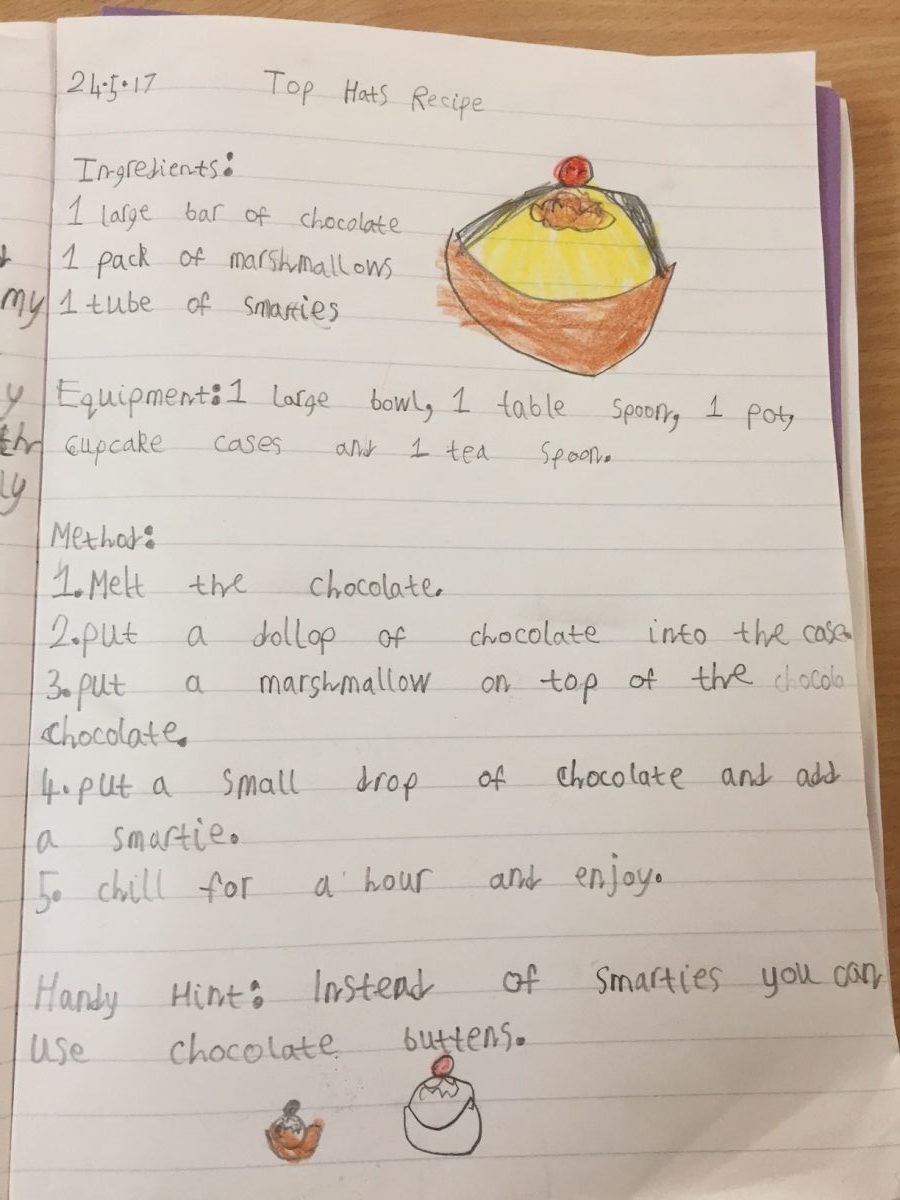 24.5.17 Top Hats Recipe
Ingredients:
1 large bar of chocolate
1 pack of marshmallows
my 1 tube of smarties
y Equipment: 1 large bowl, 1 table spoon, 1 pot,
th cupcake cases and 1 tea spoon.
ly
Method:
1. Melt the chocolate.
2. put a dollop of chocolate into the case.
3. put a marshmallow on top of the chocola
chocolate.
4. put a small drop of chocolate and add
a smartie.
5. chill for a hour and enjoy.
Handy Hint: Instead of smarties you can
use chocolate buttens.